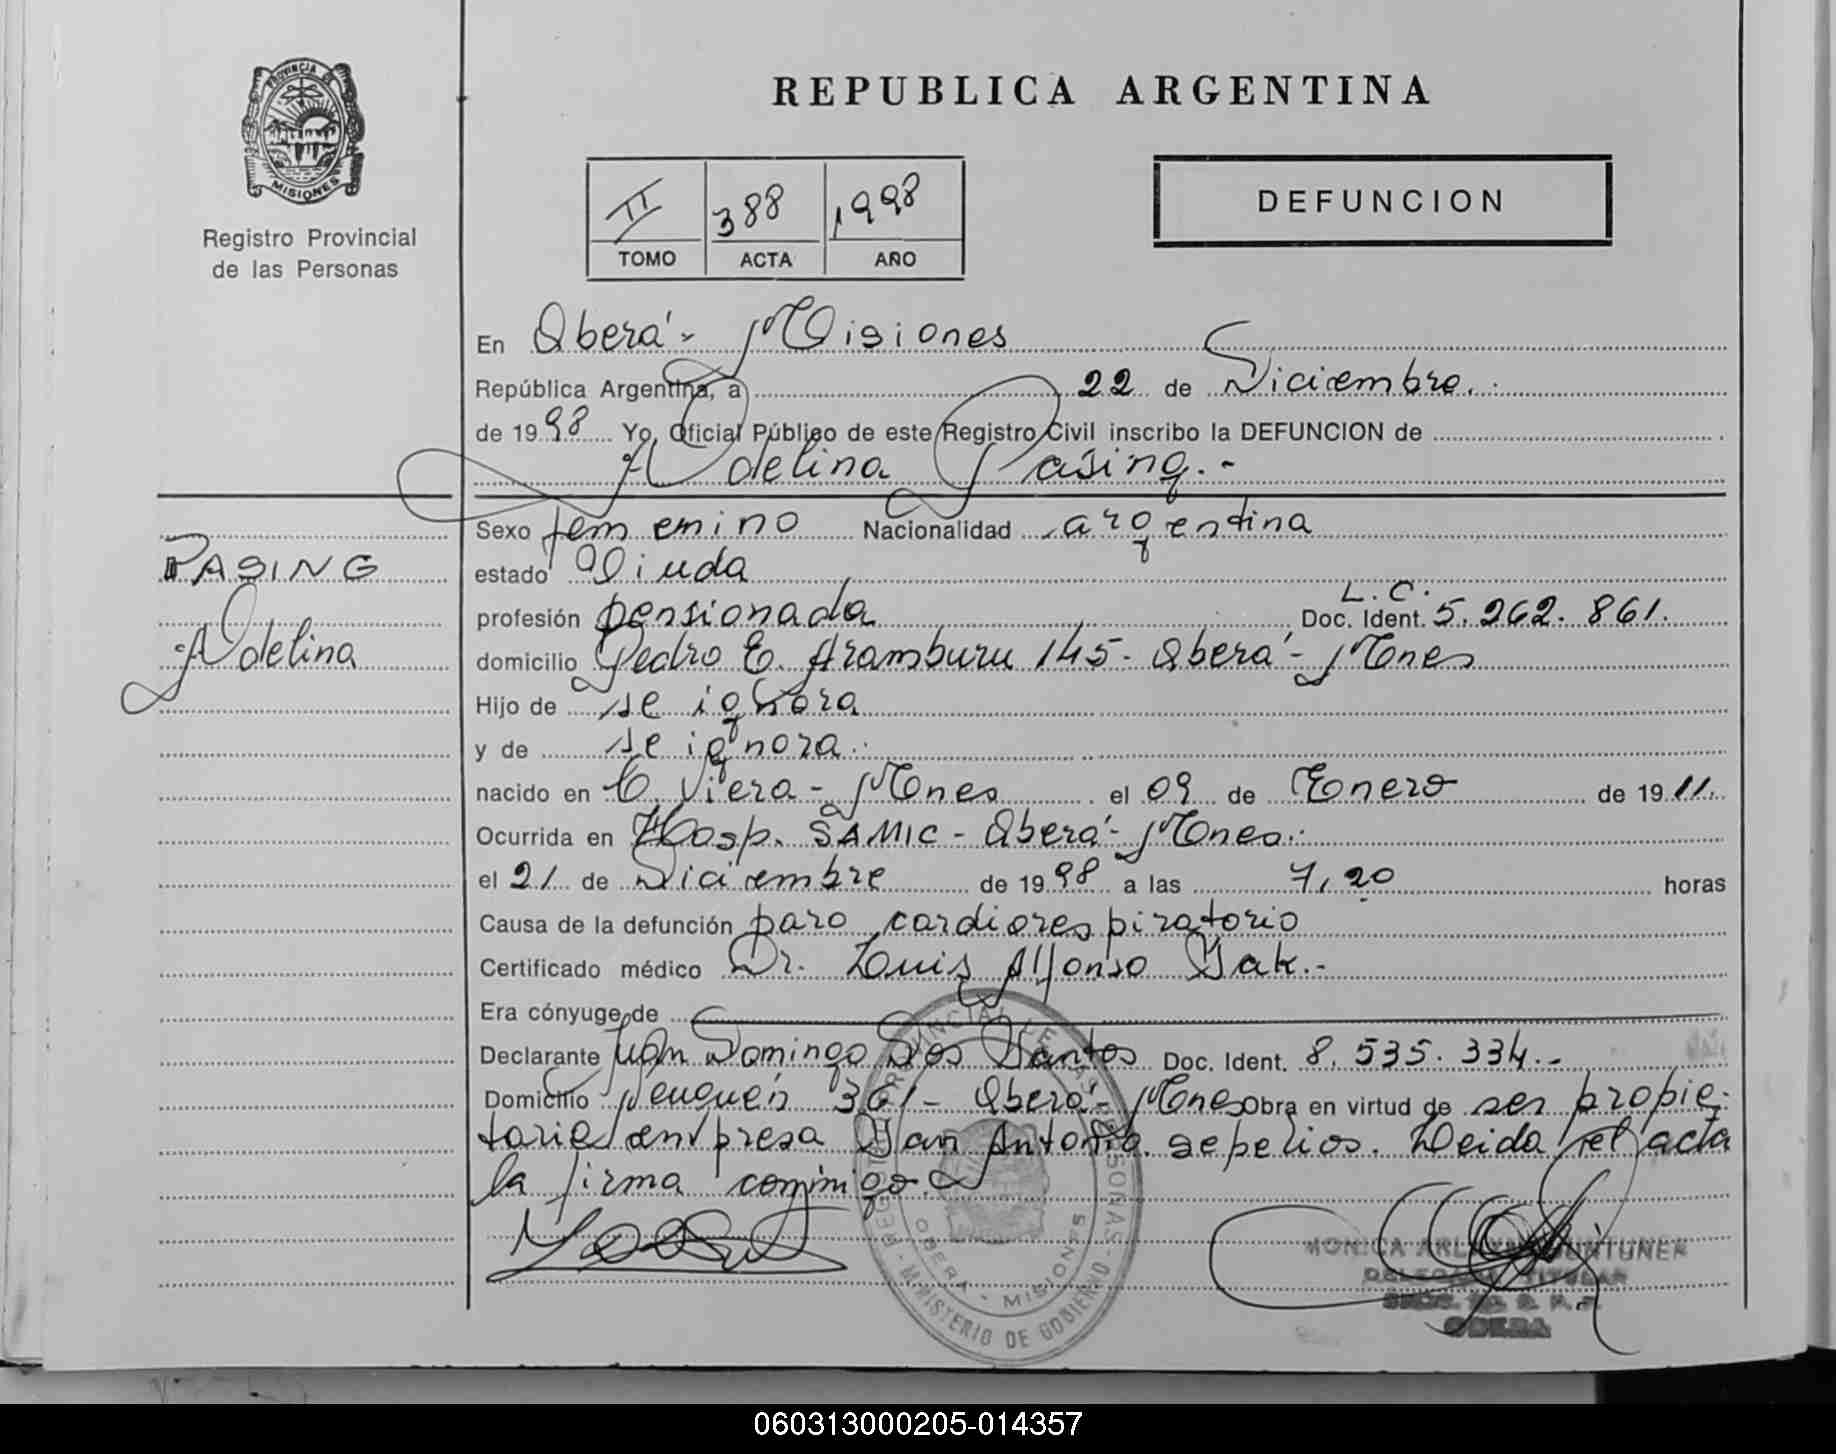 PROVINCIA DE
MISIONES
Registro Provincial
de las Personas
REPUBLICA ARGENTINA
II 388 1998
TOMO ACTA AÑO
DEFUNCION
En Oberá - Misiones
República Argentina, a 22 de Diciembre.
de 1998 Yo, Oficial Público de este Registro Civil inscribo la DEFUNCION de
Adelina Pasing.-
PASING
Adelina
Sexo femenino Nacionalidad argentina
estado Viuda
profesión pensionada Doc. Ident. L.C. 5.262.861.
domicilio Pedro E. Aramburu 145- Oberá - Mnes
Hijo de se ignora
y de se ignora.
nacido en C. Viera - Mnes el 09 de Enero de 1911.
Ocurrida en Hosp. SAMIC - Oberá - Mnes.
el 21 de Diciembre de 1998 a las 7,20 horas
Causa de la defunción paro cardiorespiratorio
Certificado médico Dr. Luis Alfonso Yak.-
Era cónyuge de
Declarante Juan Domingo Dos Santos Doc. Ident. 8.535.334.-
Domicilio Neuquén 361- Oberá - Mnes Obra en virtud de ser propie-
tario empresa San Antonio sepelios. Leida el acta
la firma conmigo.
REGISTRO PROVINCIAL DE LAS PERSONAS - MINISTERIO DE GOBIERNO
OBERA - MISIONES
MONICA
DELEGADA TITULAR
OBERA
060313000205-014357